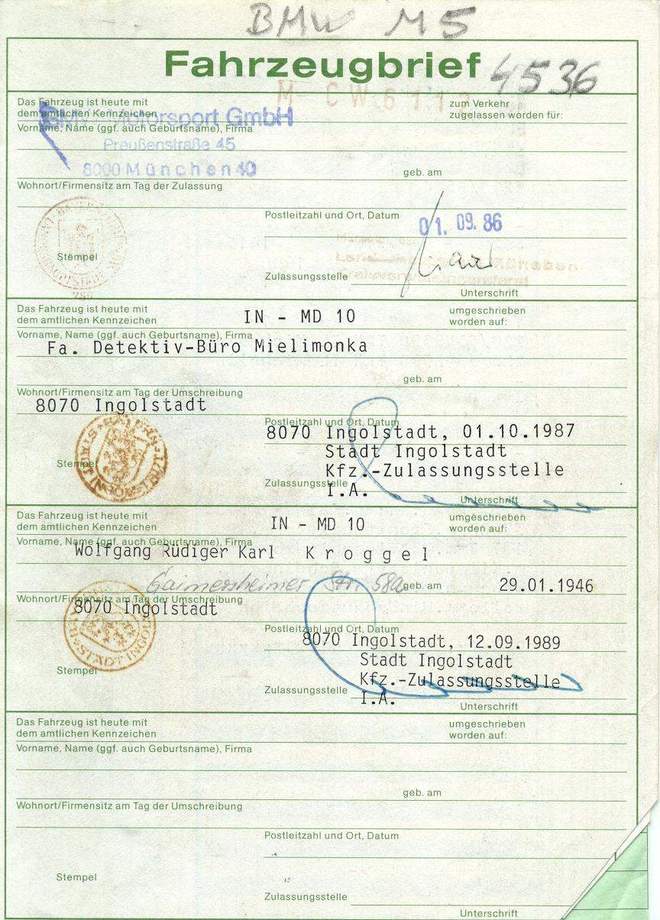 BMW M5
Fahrzeugbrief
4536
Das Fahrzeug ist heute mit
dem amtlichen Kennzeichen
M CW 611
zum Verkehr
zugelassen worden für:
Vorname, Name (ggf. auch Geburtsname), Firma
Motorsport GmbH
Preußenstraße 45
8000 München 40
geb. am
Wohnort/Firmensitz am Tag der Zulassung
Postleitzahl und Ort, Datum
01. 09. 86
Stempel
Zulassungsstelle
Unterschrift
Das Fahrzeug ist heute mit
dem amtlichen Kennzeichen
IN - MD 10
umgeschrieben
worden auf:
Vorname, Name (ggf. auch Geburtsname), Firma
Fa. Detektiv-Büro Mielimonka
geb. am
Wohnort/Firmensitz am Tag der Umschreibung
8070 Ingolstadt
Postleitzahl und Ort, Datum
8070 Ingolstadt, 01.10.1987
Stadt Ingolstadt
Kfz.-Zulassungsstelle
Stempel
Zulassungsstelle
I.A.
Unterschrift
Das Fahrzeug ist heute mit
dem amtlichen Kennzeichen
IN - MD 10
umgeschrieben
worden auf:
Vorname, Name (ggf. auch Geburtsname), Firma
Wolfgang Rüdiger Karl Kroggel
Gaimersheimer Str. 58a
geb. am
29.01.1946
Wohnort/Firmensitz am Tag der Umschreibung
8070 Ingolstadt
Postleitzahl und Ort, Datum
8070 Ingolstadt, 12.09.1989
Stadt Ingolstadt
Kfz.-Zulassungsstelle
Stempel
Zulassungsstelle
I.A.
Unterschrift
Das Fahrzeug ist heute mit
dem amtlichen Kennzeichen
umgeschrieben
worden auf:
Vorname, Name (ggf. auch Geburtsname), Firma
geb. am
Wohnort/Firmensitz am Tag der Umschreibung
Postleitzahl und Ort, Datum
Stempel
Zulassungsstelle
Unterschrift